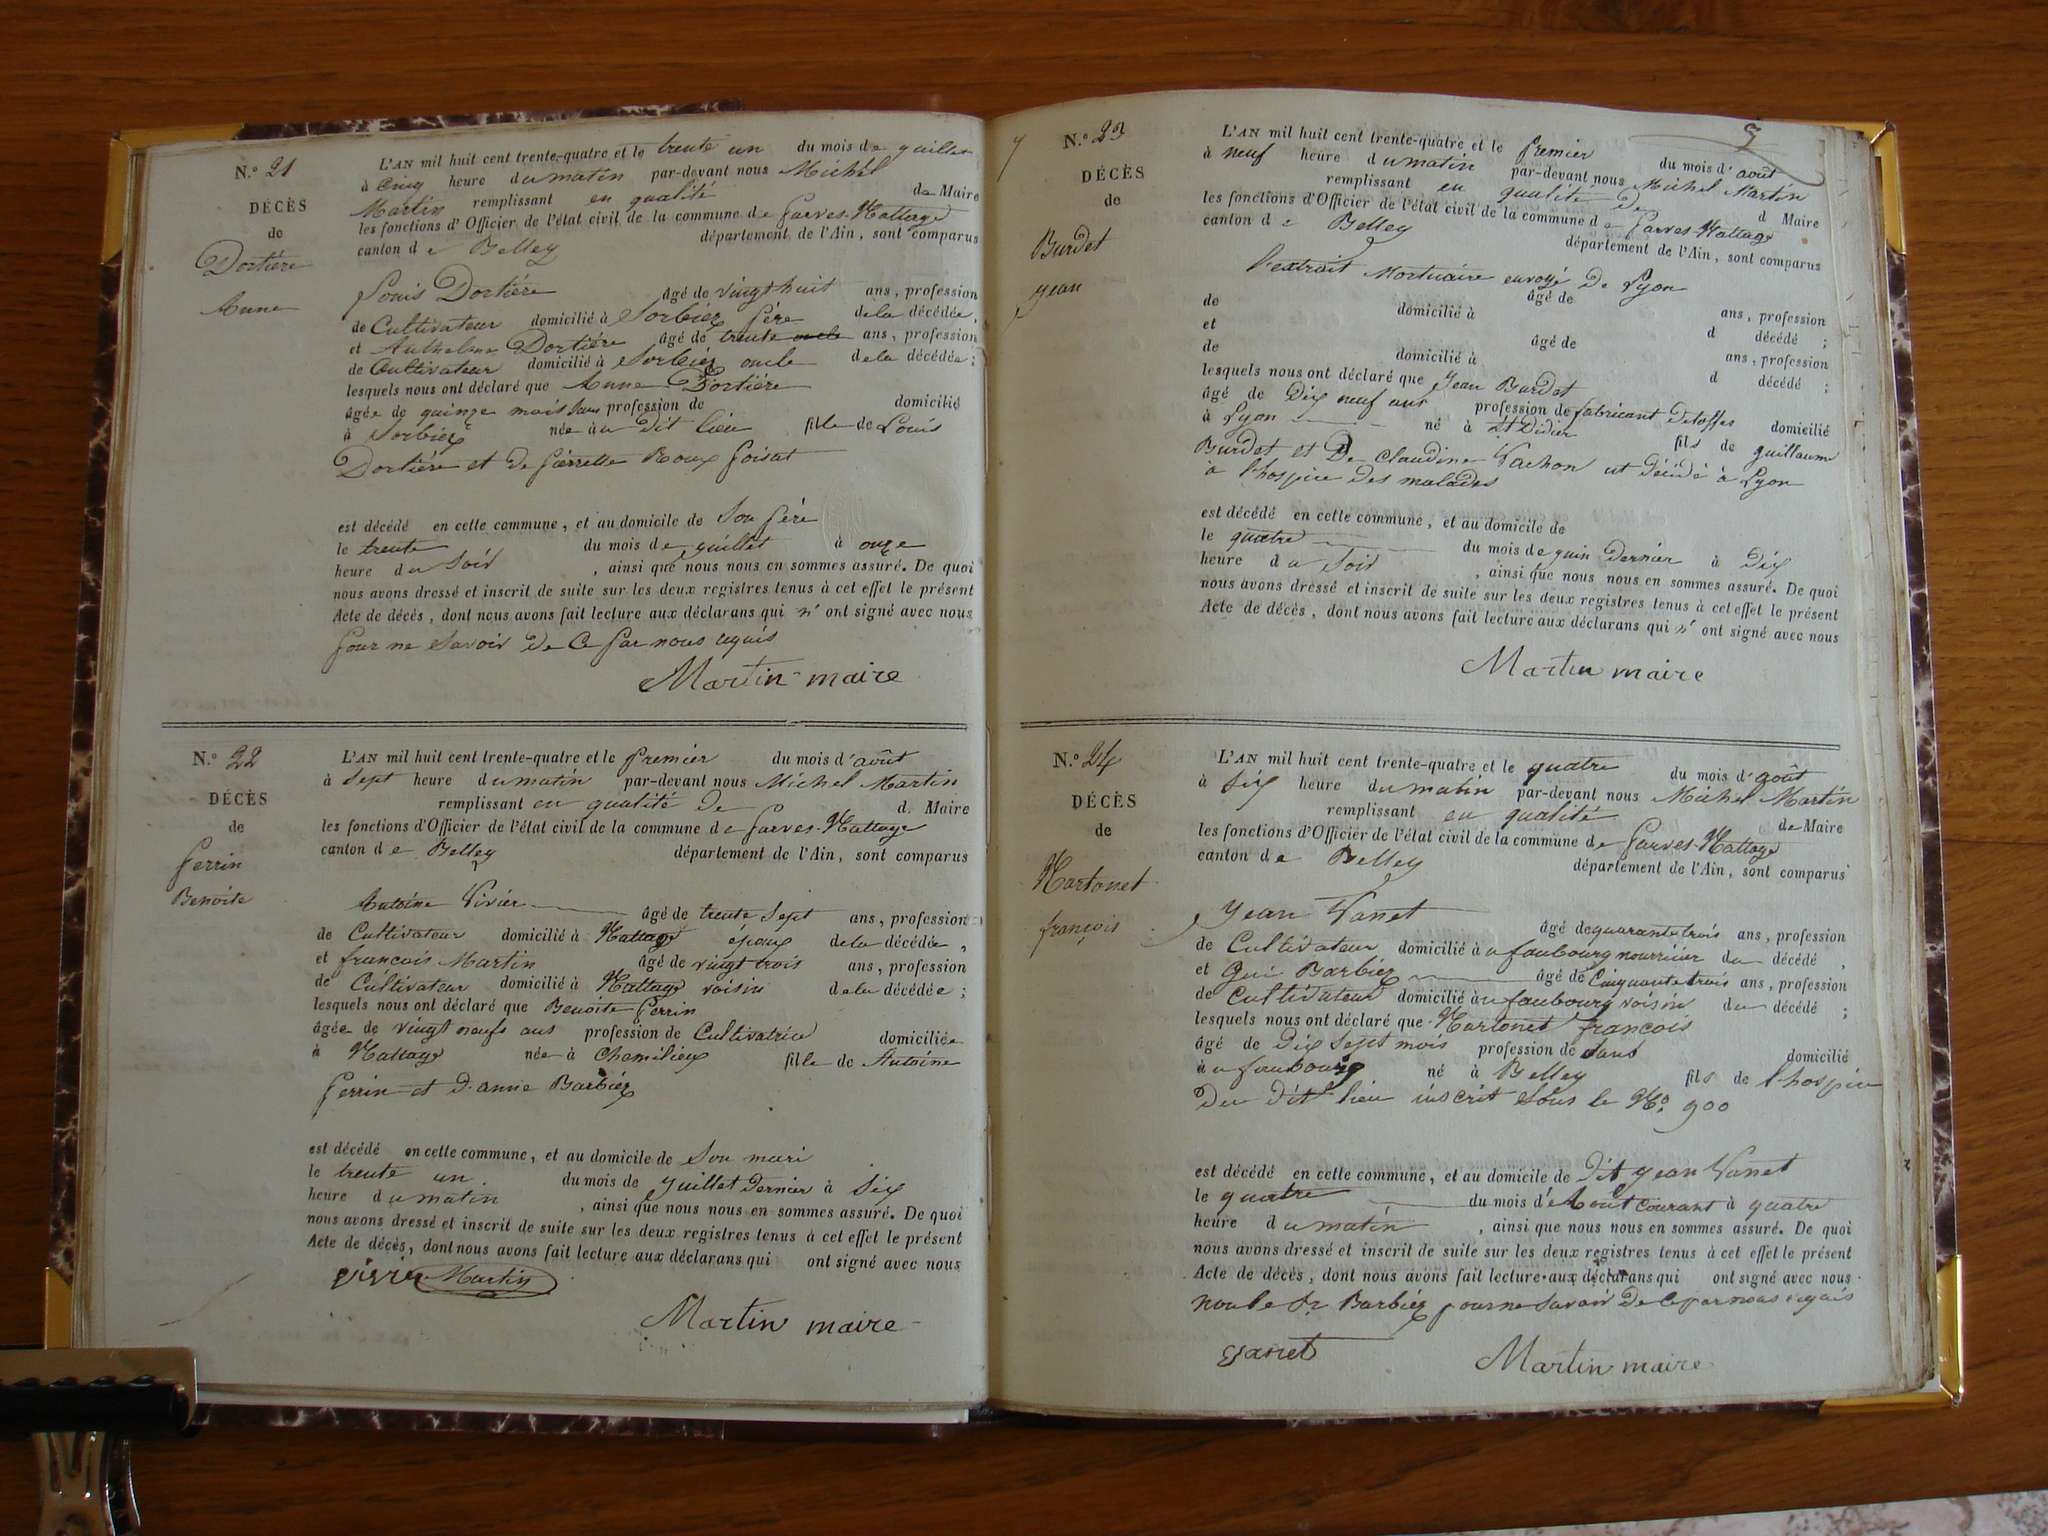 N.° 21
DÉCÈS
de
Dortière
Anne
L'AN mil huit cent trente-quatre et le trente un du mois de juillet
à cinq heure du matin par-devant nous Michel
Martin remplissant en qualité de Maire
les fonctions d'Officier de l'état civil de la commune de Parves-Nattage
canton de Belley département de l'Ain, sont comparus
Louis Dortière âgé de vingt huit ans, profession
de Cultivateur domicilié à Sorbiez père de la décédée,
et Anthelme Dortière âgé de trente ans, profession
de Cultivateur domicilié à Sorbiez oncle de la décédée ;
lesquels nous ont déclaré que Anne Dortière
âgée de quinze mois sans profession de domicilié
à Sorbiez née au dit lieu fille de Louis
Dortière et de pierrette Roux foisat
est décédé en cette commune, et au domicile de Son père
le trente du mois de juillet à onze
heure du Soir , ainsi que nous nous en sommes assuré. De quoi
nous avons dressé et inscrit de suite sur les deux registres tenus à cet effet le présent
Acte de décès, dont nous avons fait lecture aux déclarans qui n' ont signé avec nous
pour ne Savoir de Ce par nous requis
Martin maire
N.° 22
DÉCÈS
de
Perrin
Benoite
L'AN mil huit cent trente-quatre et le premier du mois d'août
à Sept heure du matin par-devant nous Michel Martin
remplissant en qualité de d. Maire
les fonctions d'Officier de l'état civil de la commune de Parves-Nattage
canton de Belley département de l'Ain, sont comparus
Antoine Vivier âgé de trente Sept ans, profession
de Cultivateur domicilié à Nattage époux de la décédée,
et françois Martin âgé de vingt trois ans, profession
de Cultivateur domicilié à Nattage voisin de la décédée ;
lesquels nous ont déclaré que Benoite Perrin
âgée de vingt neufs ans profession de Cultivatrice domiciliée
à Nattage née à Chemilieu fille de Antoine
Perrin et d'anne Barbier
est décédé en cette commune, et au domicile de Son mari
le trente un du mois de Juillet dernier à Six
heure du matin , ainsi que nous nous en sommes assuré. De quoi
nous avons dressé et inscrit de suite sur les deux registres tenus à cet effet le présent
Acte de décès, dont nous avons fait lecture aux déclarans qui ont signé avec nous
vivier Martin
Martin maire
5
N.° 23
DÉCÈS
de
Burdet
Jean
L'AN mil huit cent trente-quatre et le premier du mois d'août
à neuf heure du matin par-devant nous Michel Martin
remplissant en qualité de d Maire
les fonctions d'Officier de l'état civil de la commune de Parves-Nattage
canton de Belley département de l'Ain, sont comparus
l'extrait Mortuaire envoyé de Lyon âgé de ans, profession
de domicilié à d décédé ;
et âgé de ans, profession
de domicilié à d décédé ;
lesquels nous ont déclaré que Jean Burdet
âgé de Dix neuf ans profession de fabricant d'etoffes domicilié
à Lyon né à St Didier fils de guillaume
Burdet et De Claudine Vachon est décédé à Lyon
à l'hospice des malades
est décédé en cette commune, et au domicile de
le quatre du mois de juin dernier à Dix
heure du Soir , ainsi que nous nous en sommes assuré. De quoi
nous avons dressé et inscrit de suite sur les deux registres tenus à cet effet le présent
Acte de décès, dont nous avons fait lecture aux déclarans qui n' ont signé avec nous
Martin maire
N.° 24
DÉCÈS
de
Martonet
françois
L'AN mil huit cent trente-quatre et le quatre du mois d'août
à Six heure du matin par-devant nous Michel Martin
remplissant en qualité de Maire
les fonctions d'Officier de l'état civil de la commune de Parves-Nattage
canton de Belley département de l'Ain, sont comparus
Jean Vanet âgé de quarante trois ans, profession
de Cultivateur domicilié au faubourg nourricier du décédé,
et Gui Barbier âgé de Cinquante trois ans, profession
de Cultivateur domicilié au faubourg voisin du décédé ;
lesquels nous ont déclaré que Martonet françois
âgé de Dix Sept mois profession de Sans domicilié
au faubourg né à Belley fils de l'hospice
Du Dit lieu inscrit Sous le N.° 900
est décédé en cette commune, et au domicile de Dit Jean Vanet
le quatre du mois d'Août Courant à quatre
heure du matin , ainsi que nous nous en sommes assuré. De quoi
nous avons dressé et inscrit de suite sur les deux registres tenus à cet effet le présent
Acte de décès, dont nous avons fait lecture aux déclarans qui ont signé avec nous
Barbier pour ne Savoir de Ce par nous requis
vanet Martin maire